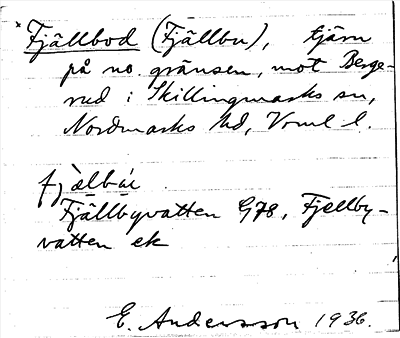 *Fjällbod (Fjällbu), tjärn
på no. gränsen, mot Berge-
rud i Skillingmarks sn,
Nordmarks hd, Vrml l.
Fjällbyvatten G78, Fjellby-
vatten ek
E. Andersson 1936.